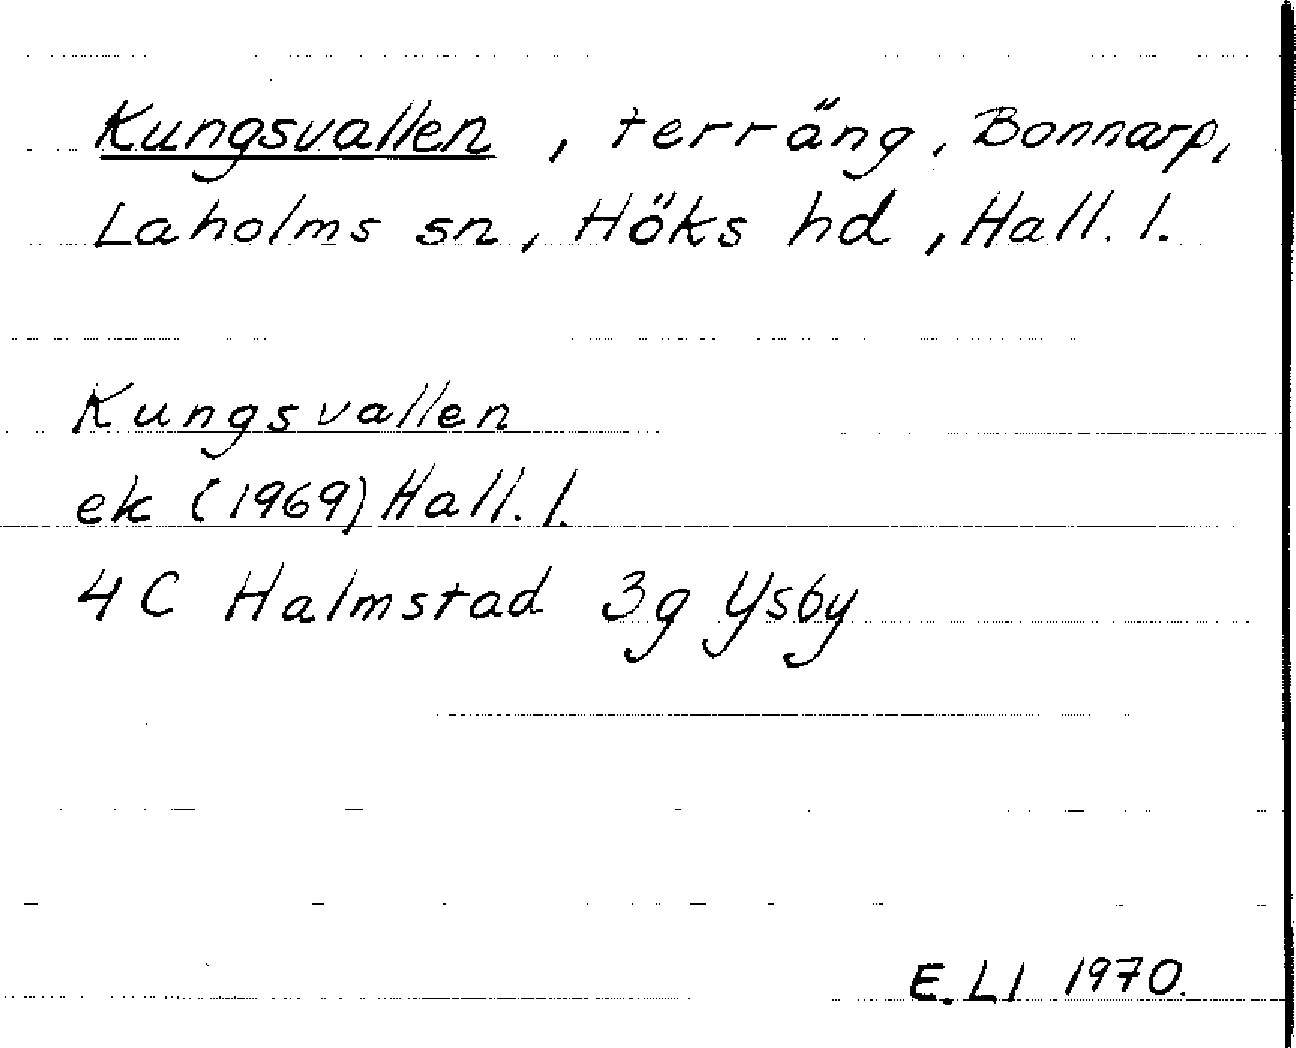 Kungsvallen, terräng, Bonnarp,
Laholms sn, Höks hd, Hall. l.
Kungsvallen
ek (1969) Hall. l.
4C Halmstad 3g Ysby
E. Ll 1970.